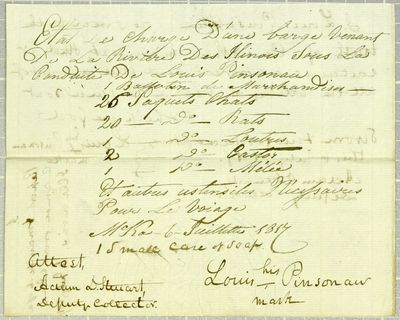 Etat de charge D'une barge venant
De La Rivière Des Ilinois Sous La
Conduite De Louis Pinsonau
1 Balloton de Marchandises
26 Paquets Chats
20 — Do — Rats
1 — Do — Loutres
2 Do Castor
1 — Do — Mélée
Et autres ustensiles Necessaires
Pour Le Voiage
McKa - 6 - Juillette 1817
1 Small Case of Soap
Attest,
Adam D. Steuart,
Deputy Collector.
Louis his Pinsonau
mark